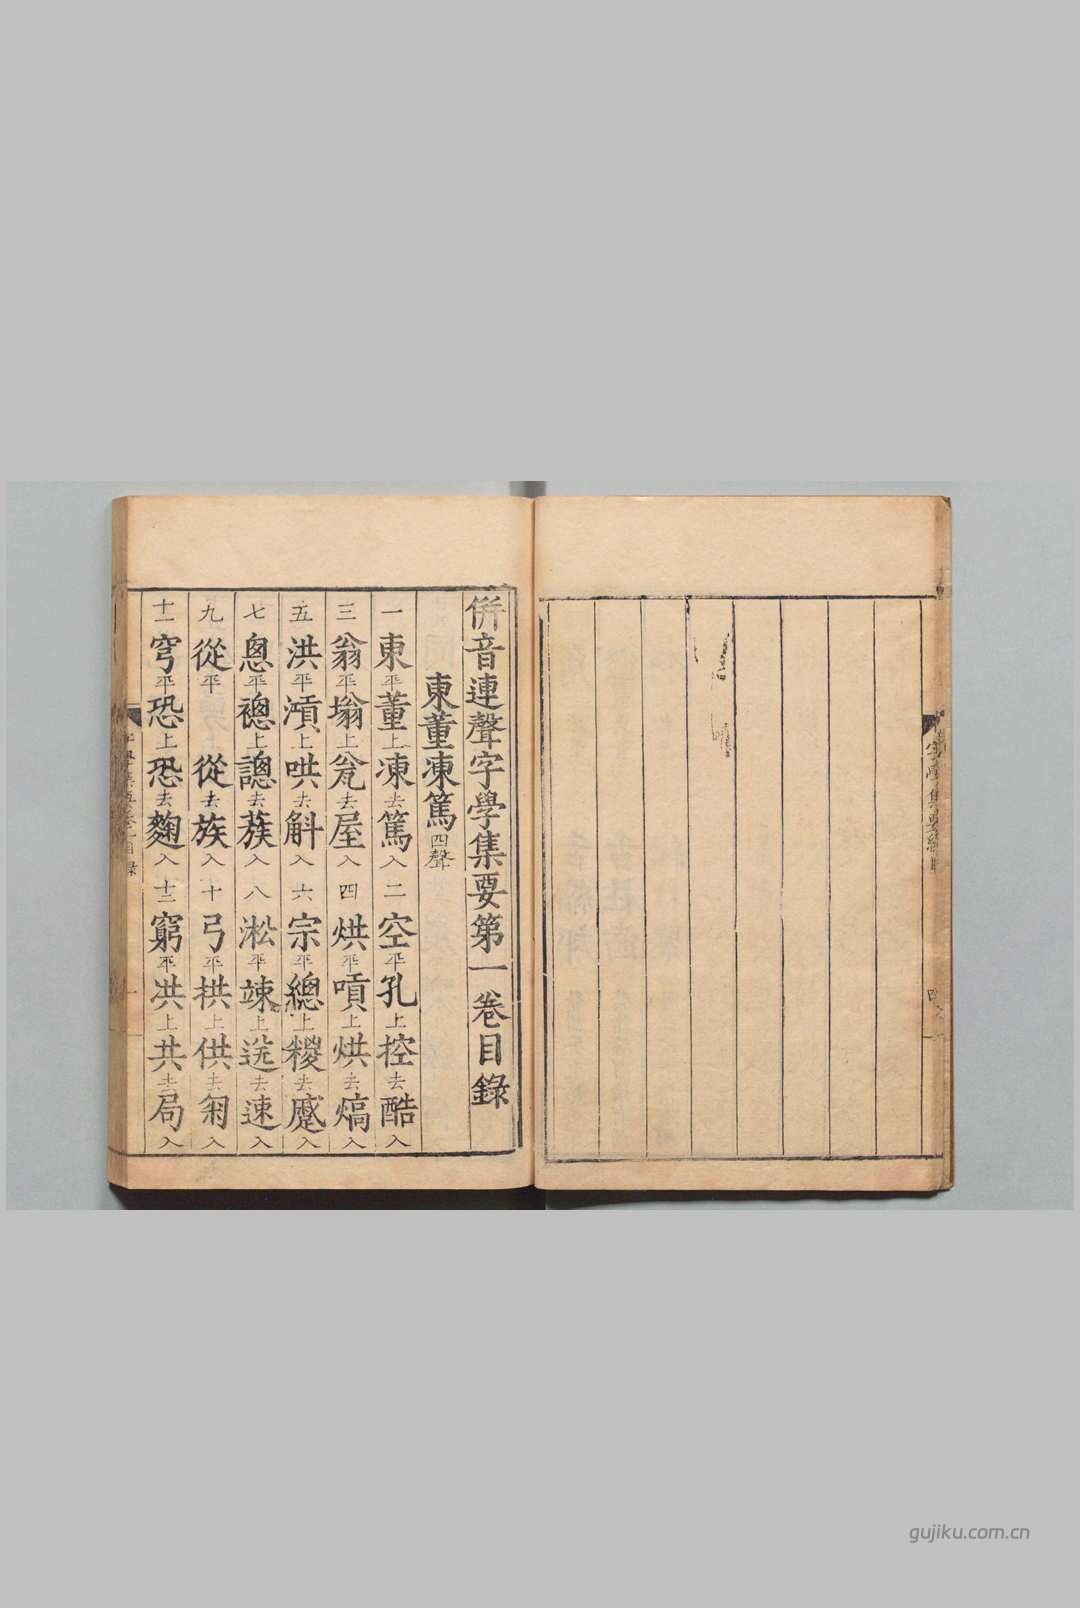 字學集要總目
併音連聲字學集要第一卷目錄
東董凍篤四聲
一 東平董上凍去篤入 二 空平孔上控去酷入
三 翁平塕上瓮去屋入 四 烘平嗊上烘去熇入
五 洪平澒上哄去斛入 六 宗平總上糉去蹙入
七 悤平𢃓上謥去蔟入 八 淞平竦上送去速入
九 從平 從去族入 十 弓平拱上供去匊入
十一 穹平恐上恐去麴入 十二 窮平㳟上共去局入
字學集要卷之一目錄 一
gujiku.com.cn